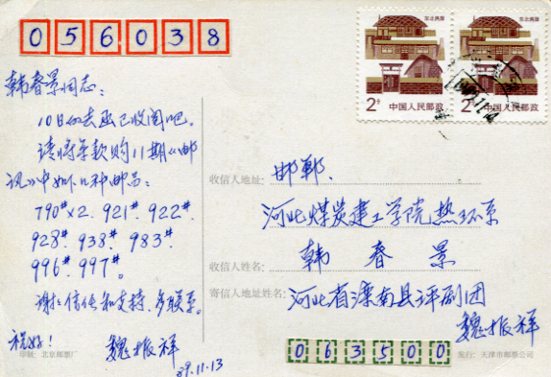 056038
韩春景同志:
10日的去函已收阅吧。
请将余款购11期《邮
讯》中如下几种邮品:
790#×2. 921#. 922#.
928#. 938#. 983#.
996#. 997#。
谢谢信任和支持,多联系。
祝好!
魏振祥
89.11.13
印制:北京邮票厂
东北民居
2分
中国人民邮政
东北民居
2分
中国人民邮政
收信人地址:邯郸、
河北煤炭建工学院热环系
收信人姓名:韩春景
寄信人地址姓名:河北省滦南县评剧团
魏振祥
063500
发行:天津市邮票公司